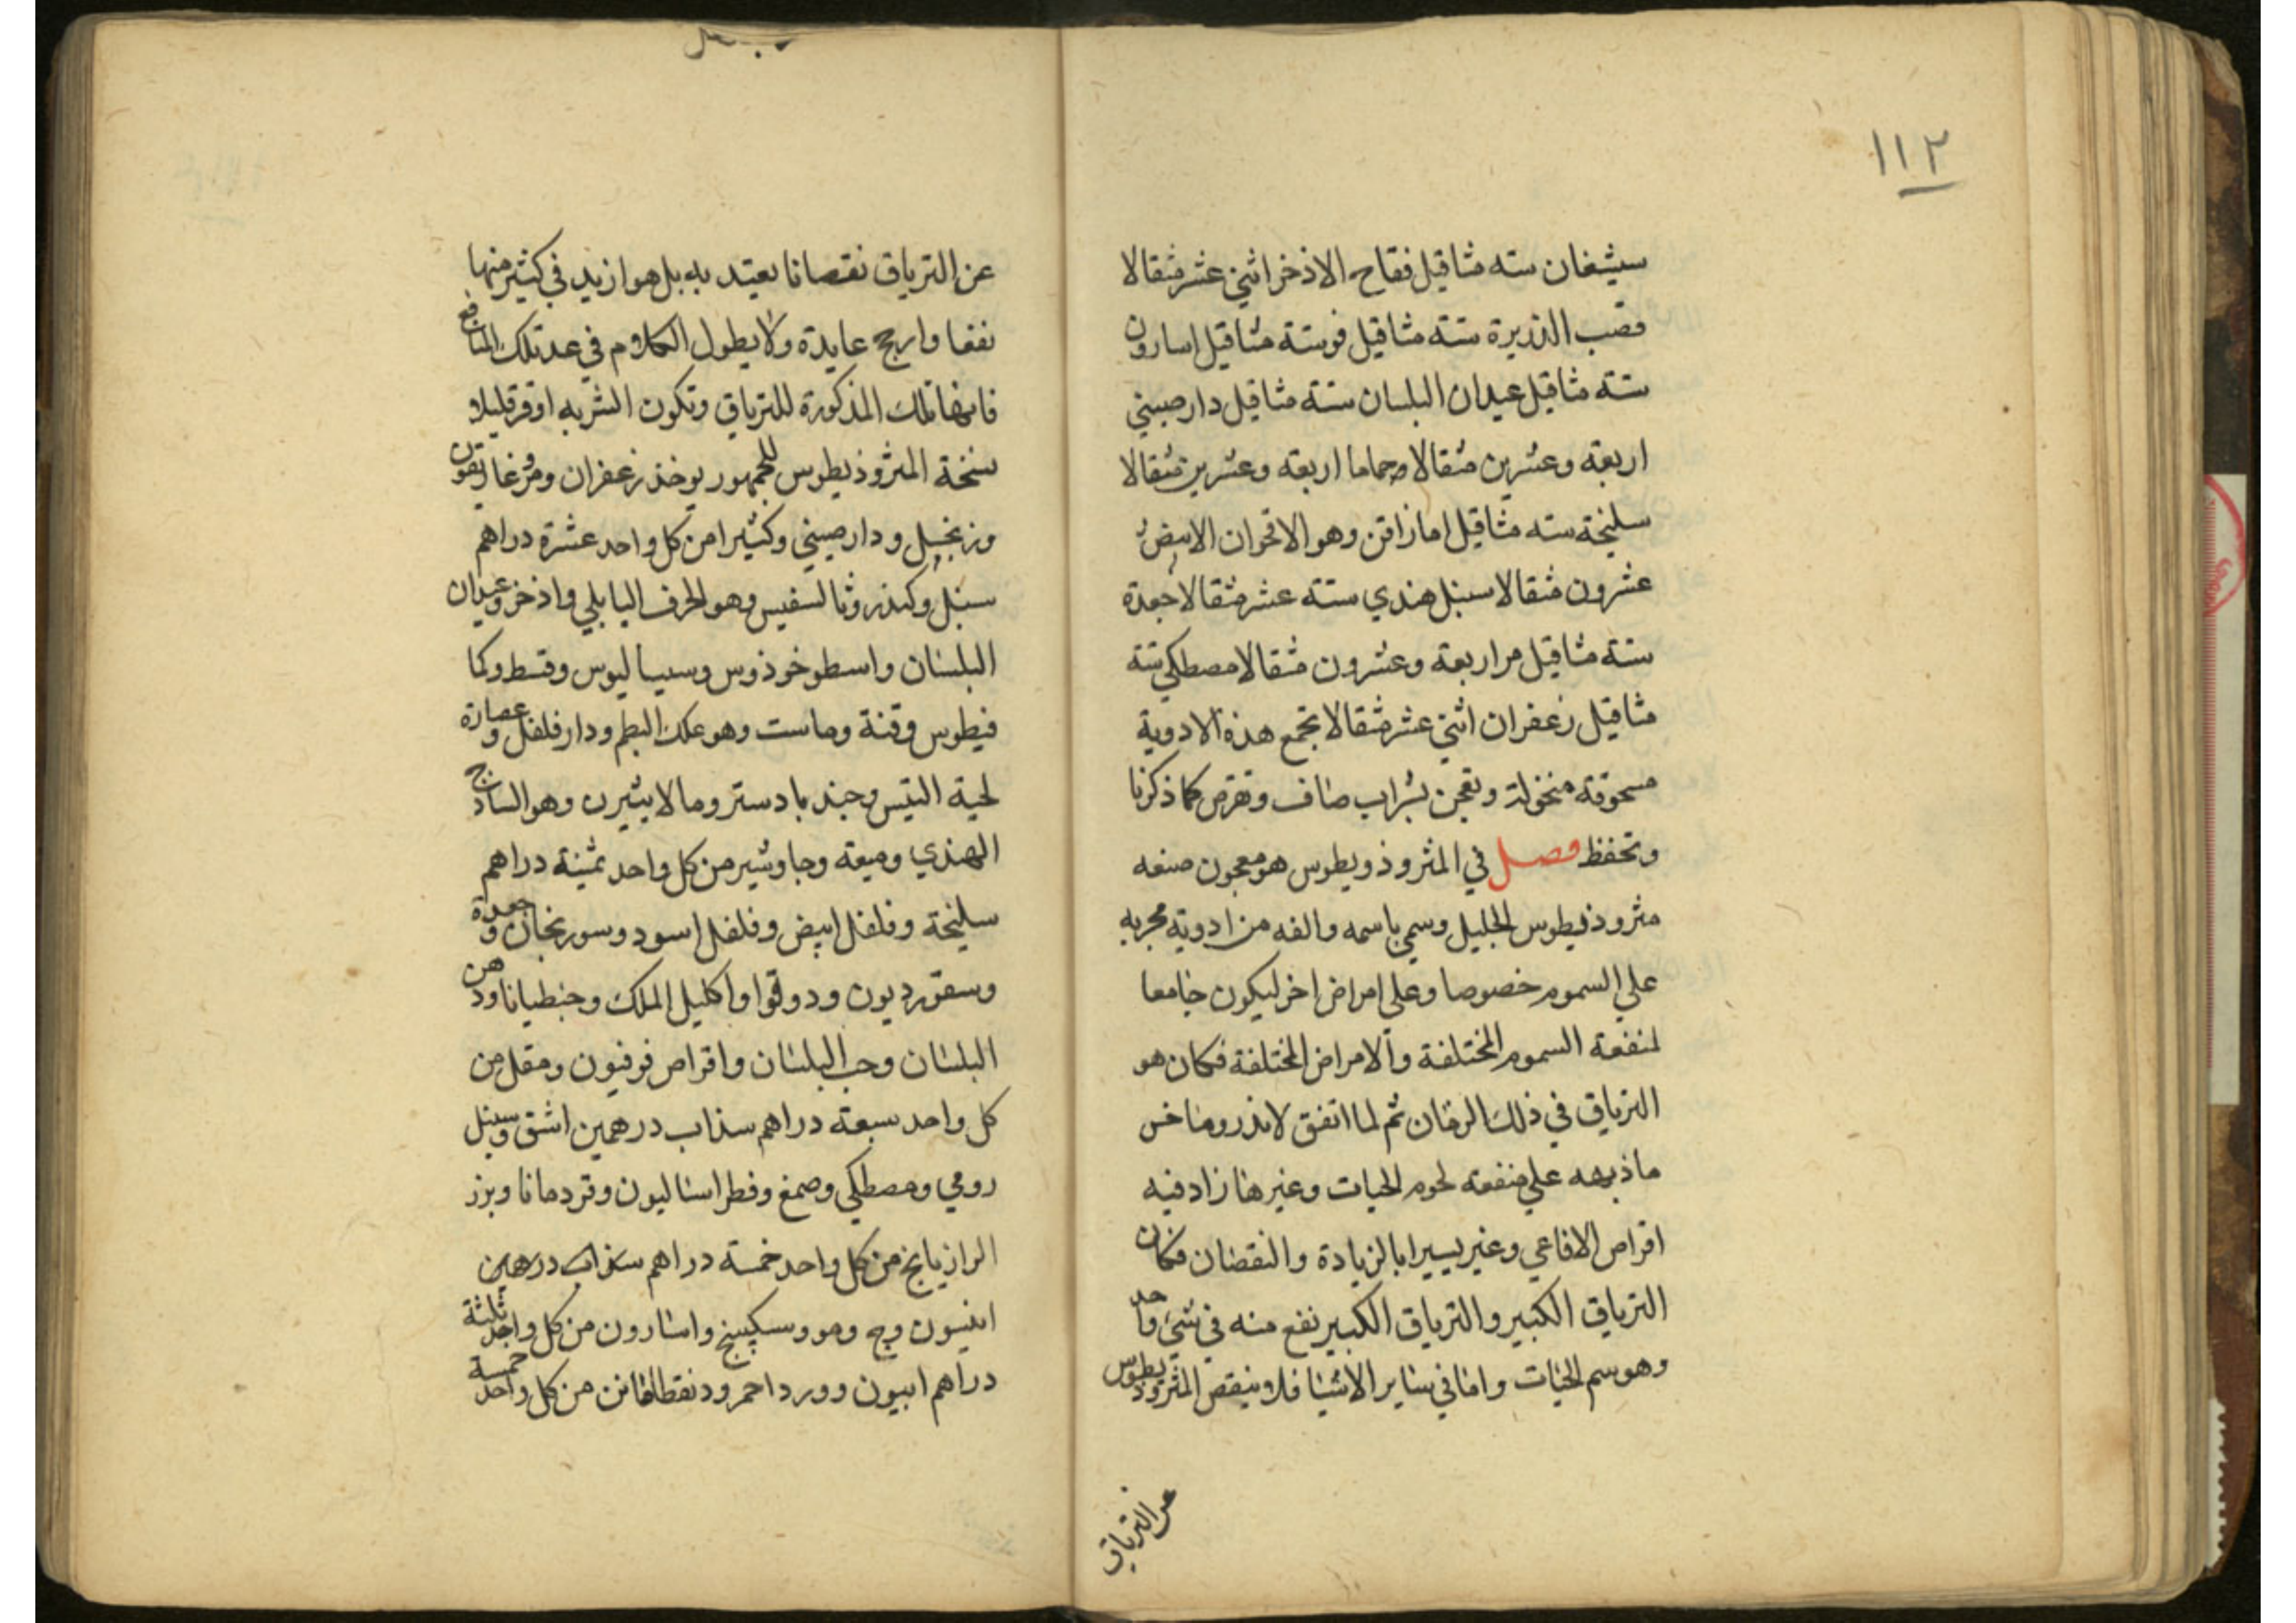 ١١٢
سيشغان سته مثاقيل فقاح الاذخر اثني عشر مثقالا
قصب الذريرة ستة مثاقيل فو ستة مثاقيل اسارون
ستة مثاقيل عيدان البلسان ستة مثاقيل دارصيني
اربعة وعشرين مثقالا حماما اربعة وعشرين مثقالا
سليخة سته مثاقيل امازاقن وهو الاقحوان الابيض
عشرون مثقالا سنبل هندي ستة عشر مثقالا جعدة
ستة مثاقيل مر اربعة وعشرون مثقالا مصطكي ستة
مثاقيل زعفران اثني عشر مثقالا تجمع هذه الادوية
مسحوقة منخولة وتعجن بشراب صاف وتقرص كما ذكرنا
وتحفظ فصل في المثروذويطوس هو معجون صنعه
مثروذيطوس الجليل وسمي باسمه والفه من ادوية مجربه
علي السموم خصوصا وعلي امراض اخر ليكون جامعا
لمنفعة السموم المختلفة والامراض المختلفة فكان هو
الترياق في ذلك الزمان ثم لما اتفق لاندروماخس
ما ذبهه علي منفعة لحوم الحيات وغيرها زاد فيه
اقراص الافاعي وغير يسيرا بالزيادة والنقصان فكان
الترياق الكبير والترياق الكبير نفع منه في شيء واحد
وهو سم الحيات واما في ساير الاشيا فلا ينقص المثروديطوس
عن الترياق
عن الترياق نقصانا يعتد به بل هو ازيد في كثير منها
نفعا واربح عايدة ولا يطول الكلام في عد تلك المنافع
فانها تلك المذكورة للترياق وتكون الشربه اوفر قليلا
نسخة المثروذيطوس للجمهور يوخذ زعفران ومر وغاريقون
وزنجبيل ودارصيني وكثيرا من كل واحد عشرة دراهم
سنبل وكندر وثالسفيس وهو الحرف البابلي واذخر وعيدان
البلسان واسطوخوذوس وسيساليوس وقسط وكما
فيطوس وقنة وماست وهو علك البطم ودار فلفل وعصارة
لحية التيس وجندبادستر ومالابيثيرن وهو الساذج
الهندي وميعة وجاوشير من كل واحد ثمنية دراهم
سليخة وفلفل ابيض وفلفل اسود وسورنجان وجعدة
وسقورديون ودوقوا واكليل الملك وجنطيانا ودهن
البلسان وحب البلسان واقراص فوفيون ومقل من
كل واحد سبعة دراهم سذاب درهمين اشق وسنبل
رومي ومصطكي وصمغ وفطراساليون وقردمانا وبزر
الرازيانج من كل واحد خمسة دراهم سذاب درهمين
انيسون وج ومو وسكبينج واسارون من كل واحد ثلثة
دراهم ابيون وورد احمر ودنقطافانن من كل واحد خمسة